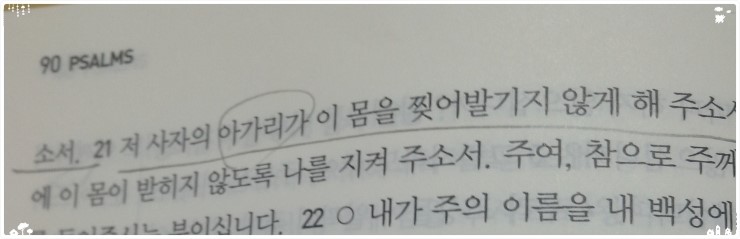 90 PSALMS
소서. 21 저 사자의 아가리가 이 몸을 찢어발기지 않게 해 주소서
에 이 몸이 받히지 않도록 나를 지켜 주소서. 주여, 참으로 주께
들어주시는 분이십니다. 22 ○ 내가 주의 이름을 내 백성에